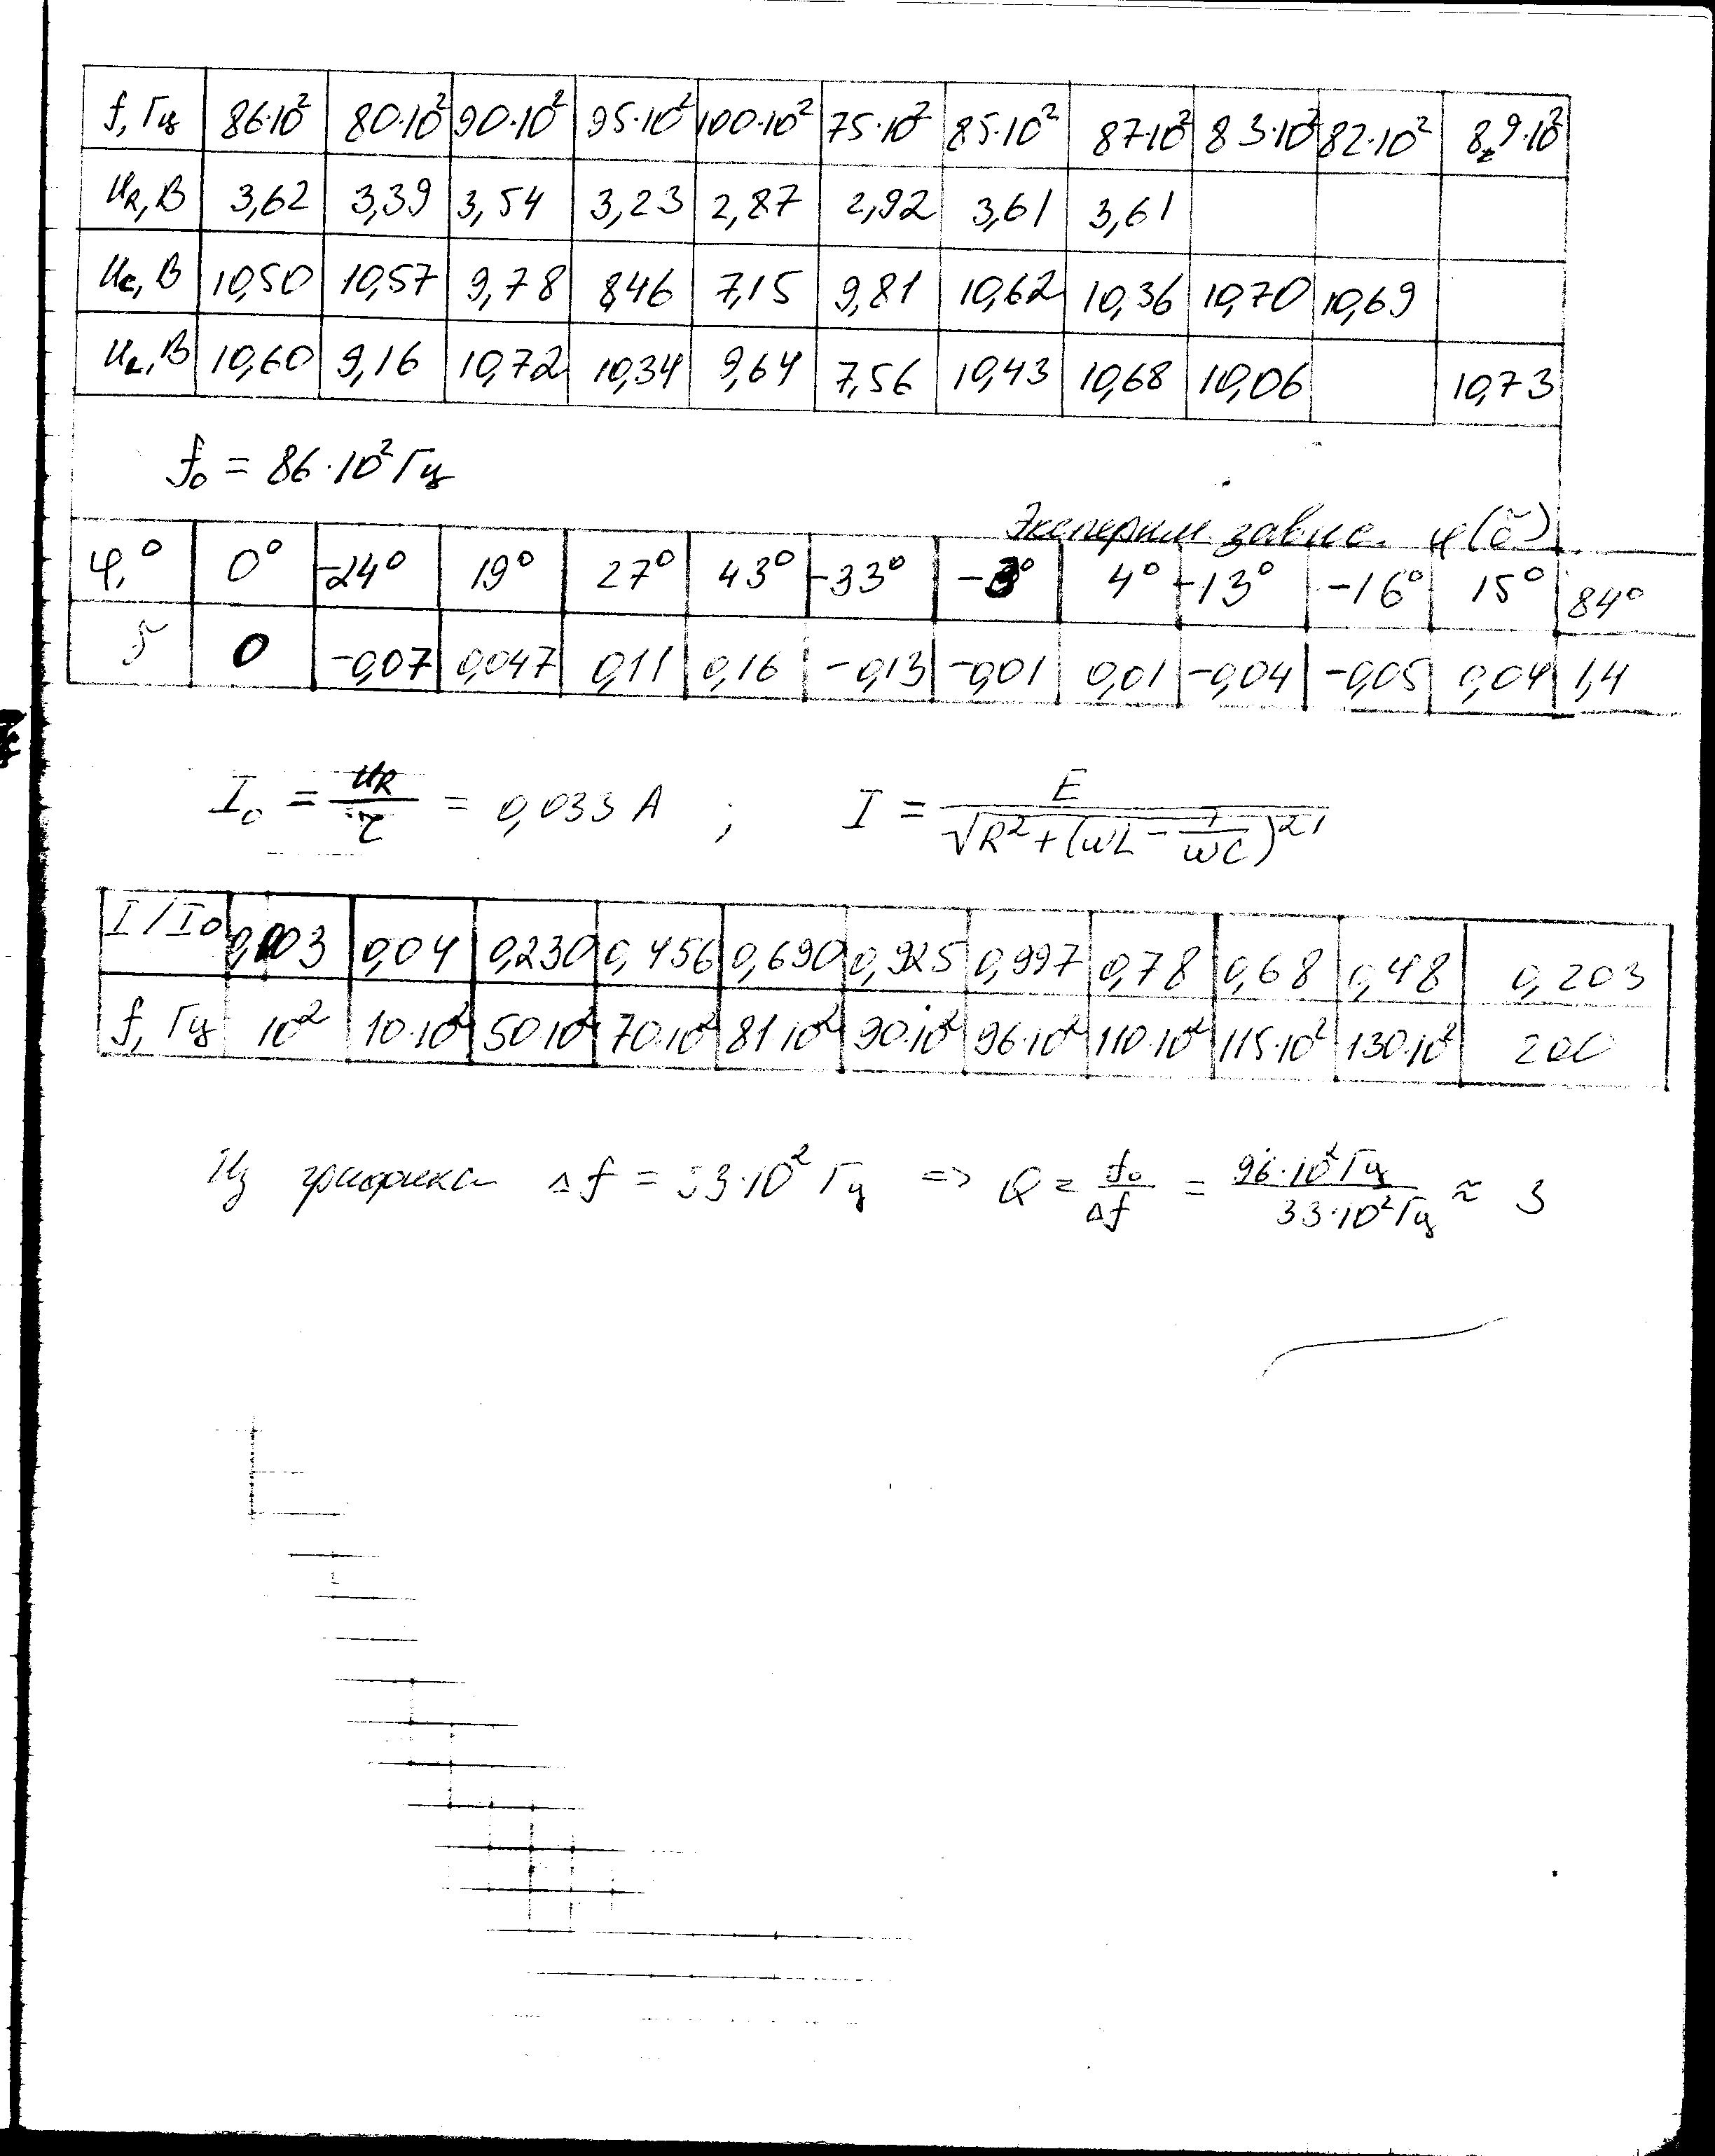 f, Гц 86·10² 80·10² 90·10² 95·10² 100·10² 75·10² 85·10² 87·10² 83·10² 82·10² 89·10²
U_R, В 3,62 3,39 3,54 3,23 2,87 2,92 3,61 3,61
U_C, В 10,50 10,57 9,78 8,46 7,15 9,81 10,62 10,36 10,70 10,69
U_L, В 10,60 9,16 10,72 10,34 9,64 7,56 10,43 10,68 10,06 10,73
f₀ = 86·10² Гц
Эксперим. завис. φ(δ)
φ,° 0° -24° 19° 27° 43° -33° -3° 4° -13° -16° 15° 84°
δ 0 -0,07 0,047 0,11 0,16 -0,13 -0,01 0,01 -0,04 -0,05 0,04 1,4
I₀ = U_R/r = 0,033 А ; I = E/√(R²+(ωL - 1/ωC)²)
I/I₀ 0,003 0,04 0,230 0,456 0,690 0,925 0,997 0,78 0,68 0,48 0,203
f, Гц 10² 10·10² 50·10² 70·10² 81·10² 90·10² 96·10² 110·10² 115·10² 130·10² 200
Из графика Δf = 33·10² Гц => Q = f₀/Δf = 96·10² Гц/33·10² Гц ≈ 3